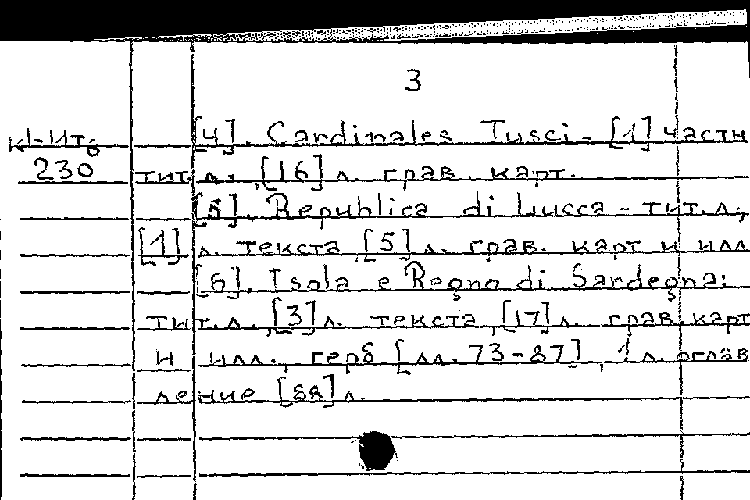 3
К1-Ит6 [4]. Cardinales Tusci - [1] частн
230 тит. л., [16] л. грав. карт.
[5]. Republica di Lucca - тит. л.,
[1] л. текста, [5] л. грав. карт и илл
[6]. Isola e Regno di Sardegna:
тит. л., [3] л. текста, [17] л. грав. карт
и илл., герб [лл. 73-87], 1 л. оглав
ление [88] л.